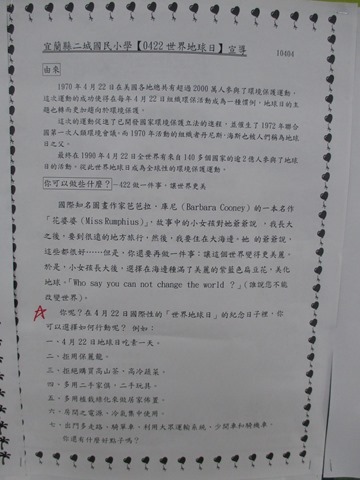 宜蘭縣二城國民小學【0422世界地球日】宣導
10404
由來
1970年4月22日在美國各地總共有超過2000萬人參與了環境保護運動。
這次運動的成功使得在每年4月22日組織環保活動成為一種慣例，地球日的主
題也轉而更加趨向於環境保護。
這次的運動促進了已開發國家環境保護立法的進程，並催生了1972年聯合
國第一次人類環境會議。而1970年活動的組織者丹尼斯·海斯也被人們稱為地球
日之父。
最終在1990年4月22日全世界有來自140多個國家的逾2億人參與了地球
日的活動，從此世界地球日成為全球性的環境保護運動。
你可以做些什麼？—422做一件事，讓世界更美
國際知名圖畫作家芭芭拉．庫尼(Barbara Cooney)的一本名作
「花婆婆(Miss Rumphius)」，故事中的小女孩對她爺爺說，我長大
之後，要到很遠的地方旅行，然後，我要住在大海邊。她的爺爺說，
這些都很好……但是，你還要再做一件事：讓這個世界變得更美麗。
於是，小女孩長大後，選擇在海邊種滿了美麗的紫藍色扁豆花，美化
地球。「Who say you can not change the world ?」(誰說您不能
改變世界)。
你呢？在4月22日國際性的「世界地球日」的紀念日子裡，你
可以選擇如何行動呢？ 例如：
一、4月22日地球日吃素一天。
二、拒用保麗龍。
三、拒絕購買高山茶、高冷蔬菜。
四、多用二手家俱、二手玩具。
五、多用植栽綠化來做居家佈置。
六、房間之電源、冷氣集中使用。
七、出門多走路、騎單車、利用大眾運輸系統、少開車和騎機車。
你還有什麼好點子嗎？